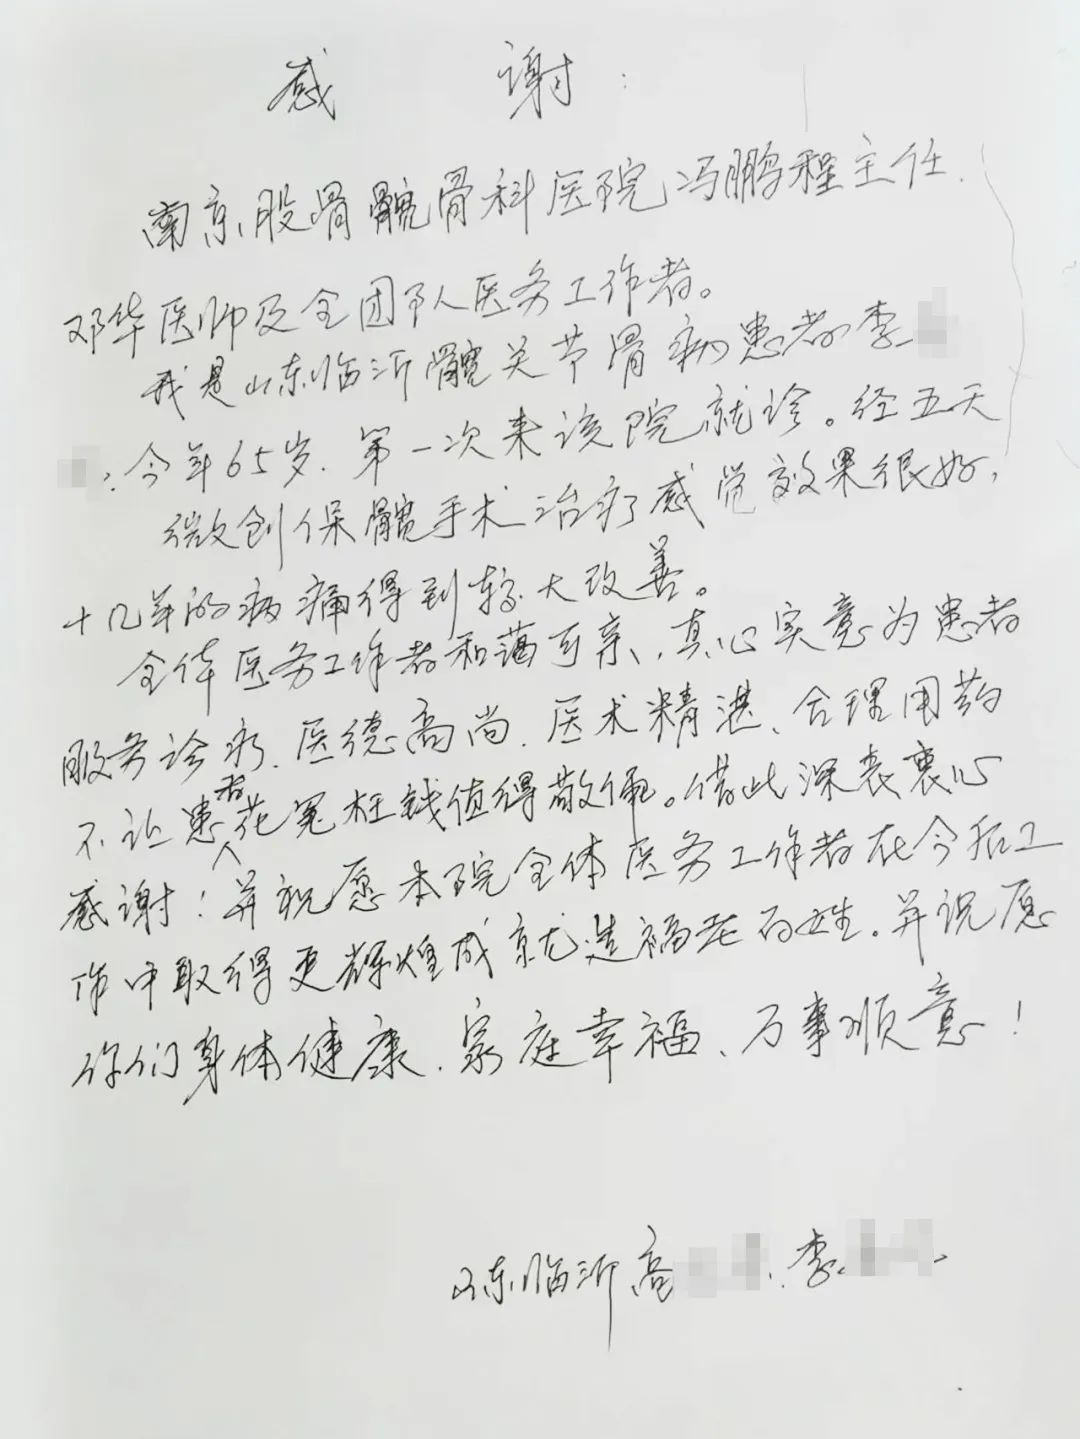 感谢:
南京股骨髋骨科医院冯鹏程主任.
邓华医师及全团队医务工作者。
我是山东临沂髋关节骨病患者李
今年65岁.第一次来该院就诊。经五天
微创保髋手术治疗感觉效果很好,
十几年的病痛得到较大改善。
全体医务工作者和蔼可亲,真心实意为患者
服务诊疗.医德高尚.医术精湛、合理用药
不让患者花冤枉钱值得敬佩。借此深表衷心
感谢!并祝愿本院全体医务工作者在今后工
作中取得更辉煌成就造福老百姓。并祝愿
你们身体健康.家庭幸福、万事顺意!
山东临沂高 李